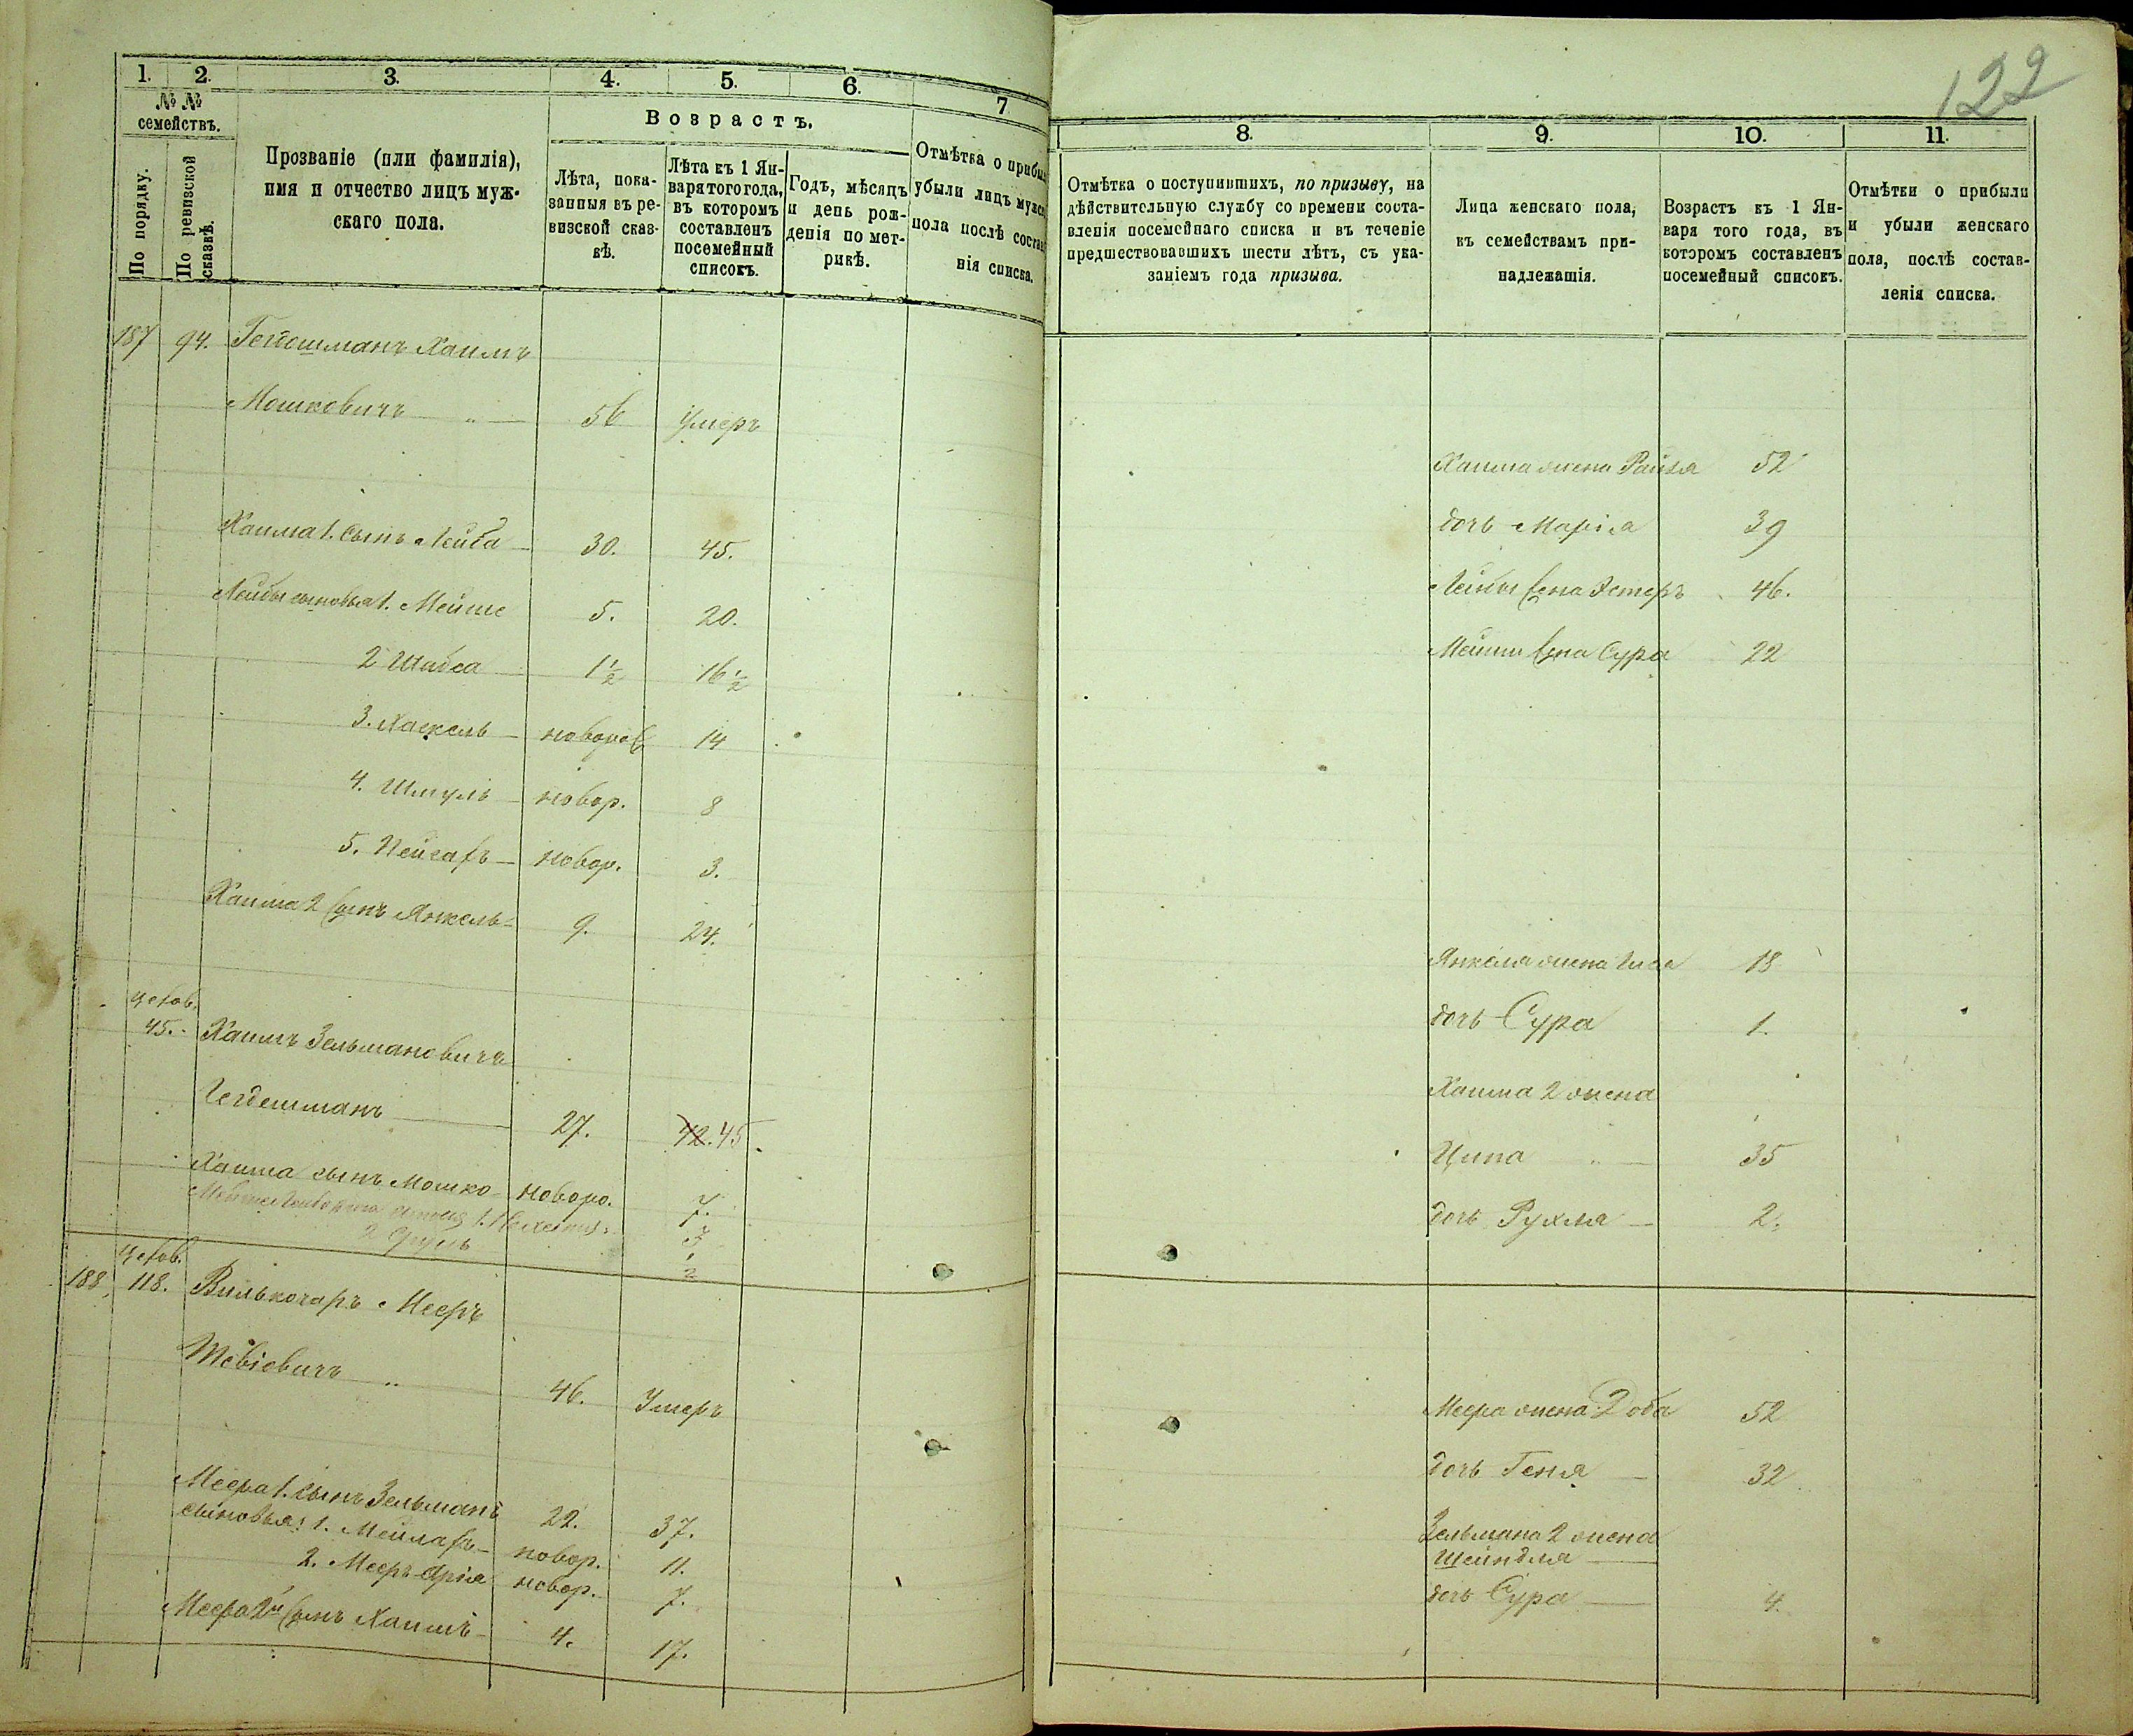 122
1. 2. 3. 4. 5. 6. 7
№ № семействъ.
По порядку.
По ревизской сказкѣ.
Прозваніе (или фамилія),
имя и отчество лицъ муж-
скаго пола.
Возрастъ.
Лѣта, пока-
занныя въ ре-
визской сказ-
кѣ.
Лѣта къ 1 Ян-
варя того года,
въ которомъ
составленъ
посемейный
списокъ.
Годъ, мѣсяцъ
и день рож-
денія по мет-
рикѣ.
Отмѣтка о прибы
убыли лицъ мужс
пола послѣ состав
нія списка.
187 94. Гегдешманъ Хаимъ
Мошковичъ 56 Умеръ
Хаима 1. сынъ Лейба 30. 45.
Лейбы сыновья 1. Мейше 5. 20.
2 Шабса 1½ 16½
3. Хаскель новорож 14
4. Шмуль новор. 8
5. Пейсахъ новор. 3.
Хаима 2 сынъ Янкель 9. 24.
45. Хаимъ Зельмановичъ
Гегдешманъ 27. 42. 45
Хаима сынъ Мошко новоро. 7.
3
2 ½
188, 118. Вилькочаръ Мееръ
Тевіевичъ 46. Умеръ
Меера 1. сынъ Зельманъ 22. 37.
сыновья: 1. Мейлахъ новор. 11.
2. Мееръ Арія новор. 7.
Меера 2й сынъ Хаимъ 4. 17.
8. 9. 10. 11.
Отмѣтка о поступившихъ, по призыву, на
дѣйствительную службу со времени соста-
вленія посемейнаго списка и въ теченіе
предшествовавшихъ шести лѣтъ, съ ука-
заніемъ года призыва.
Лица женскаго пола,
къ семействамъ при-
надлежащія.
Возрастъ къ 1 Ян-
варя того года, въ
которомъ составленъ
посемейный списокъ.
Отмѣтки о прибыли
и убыли женскаго
пола, послѣ состав-
ленія списка.
Хаима жена Райзя 52
дочь Маріа 39
Лейбы жена Эстеръ 46.
Мейши жена Сура 22
Янкеля жена 18
дочь Сура 1.
Хаима 2 жена
Ципа 35
дочь Рухля 2.
Меера жена Доба 52
дочь Геня 32
Зельмана 2 жена
Шейндля
дочь Сура 4.